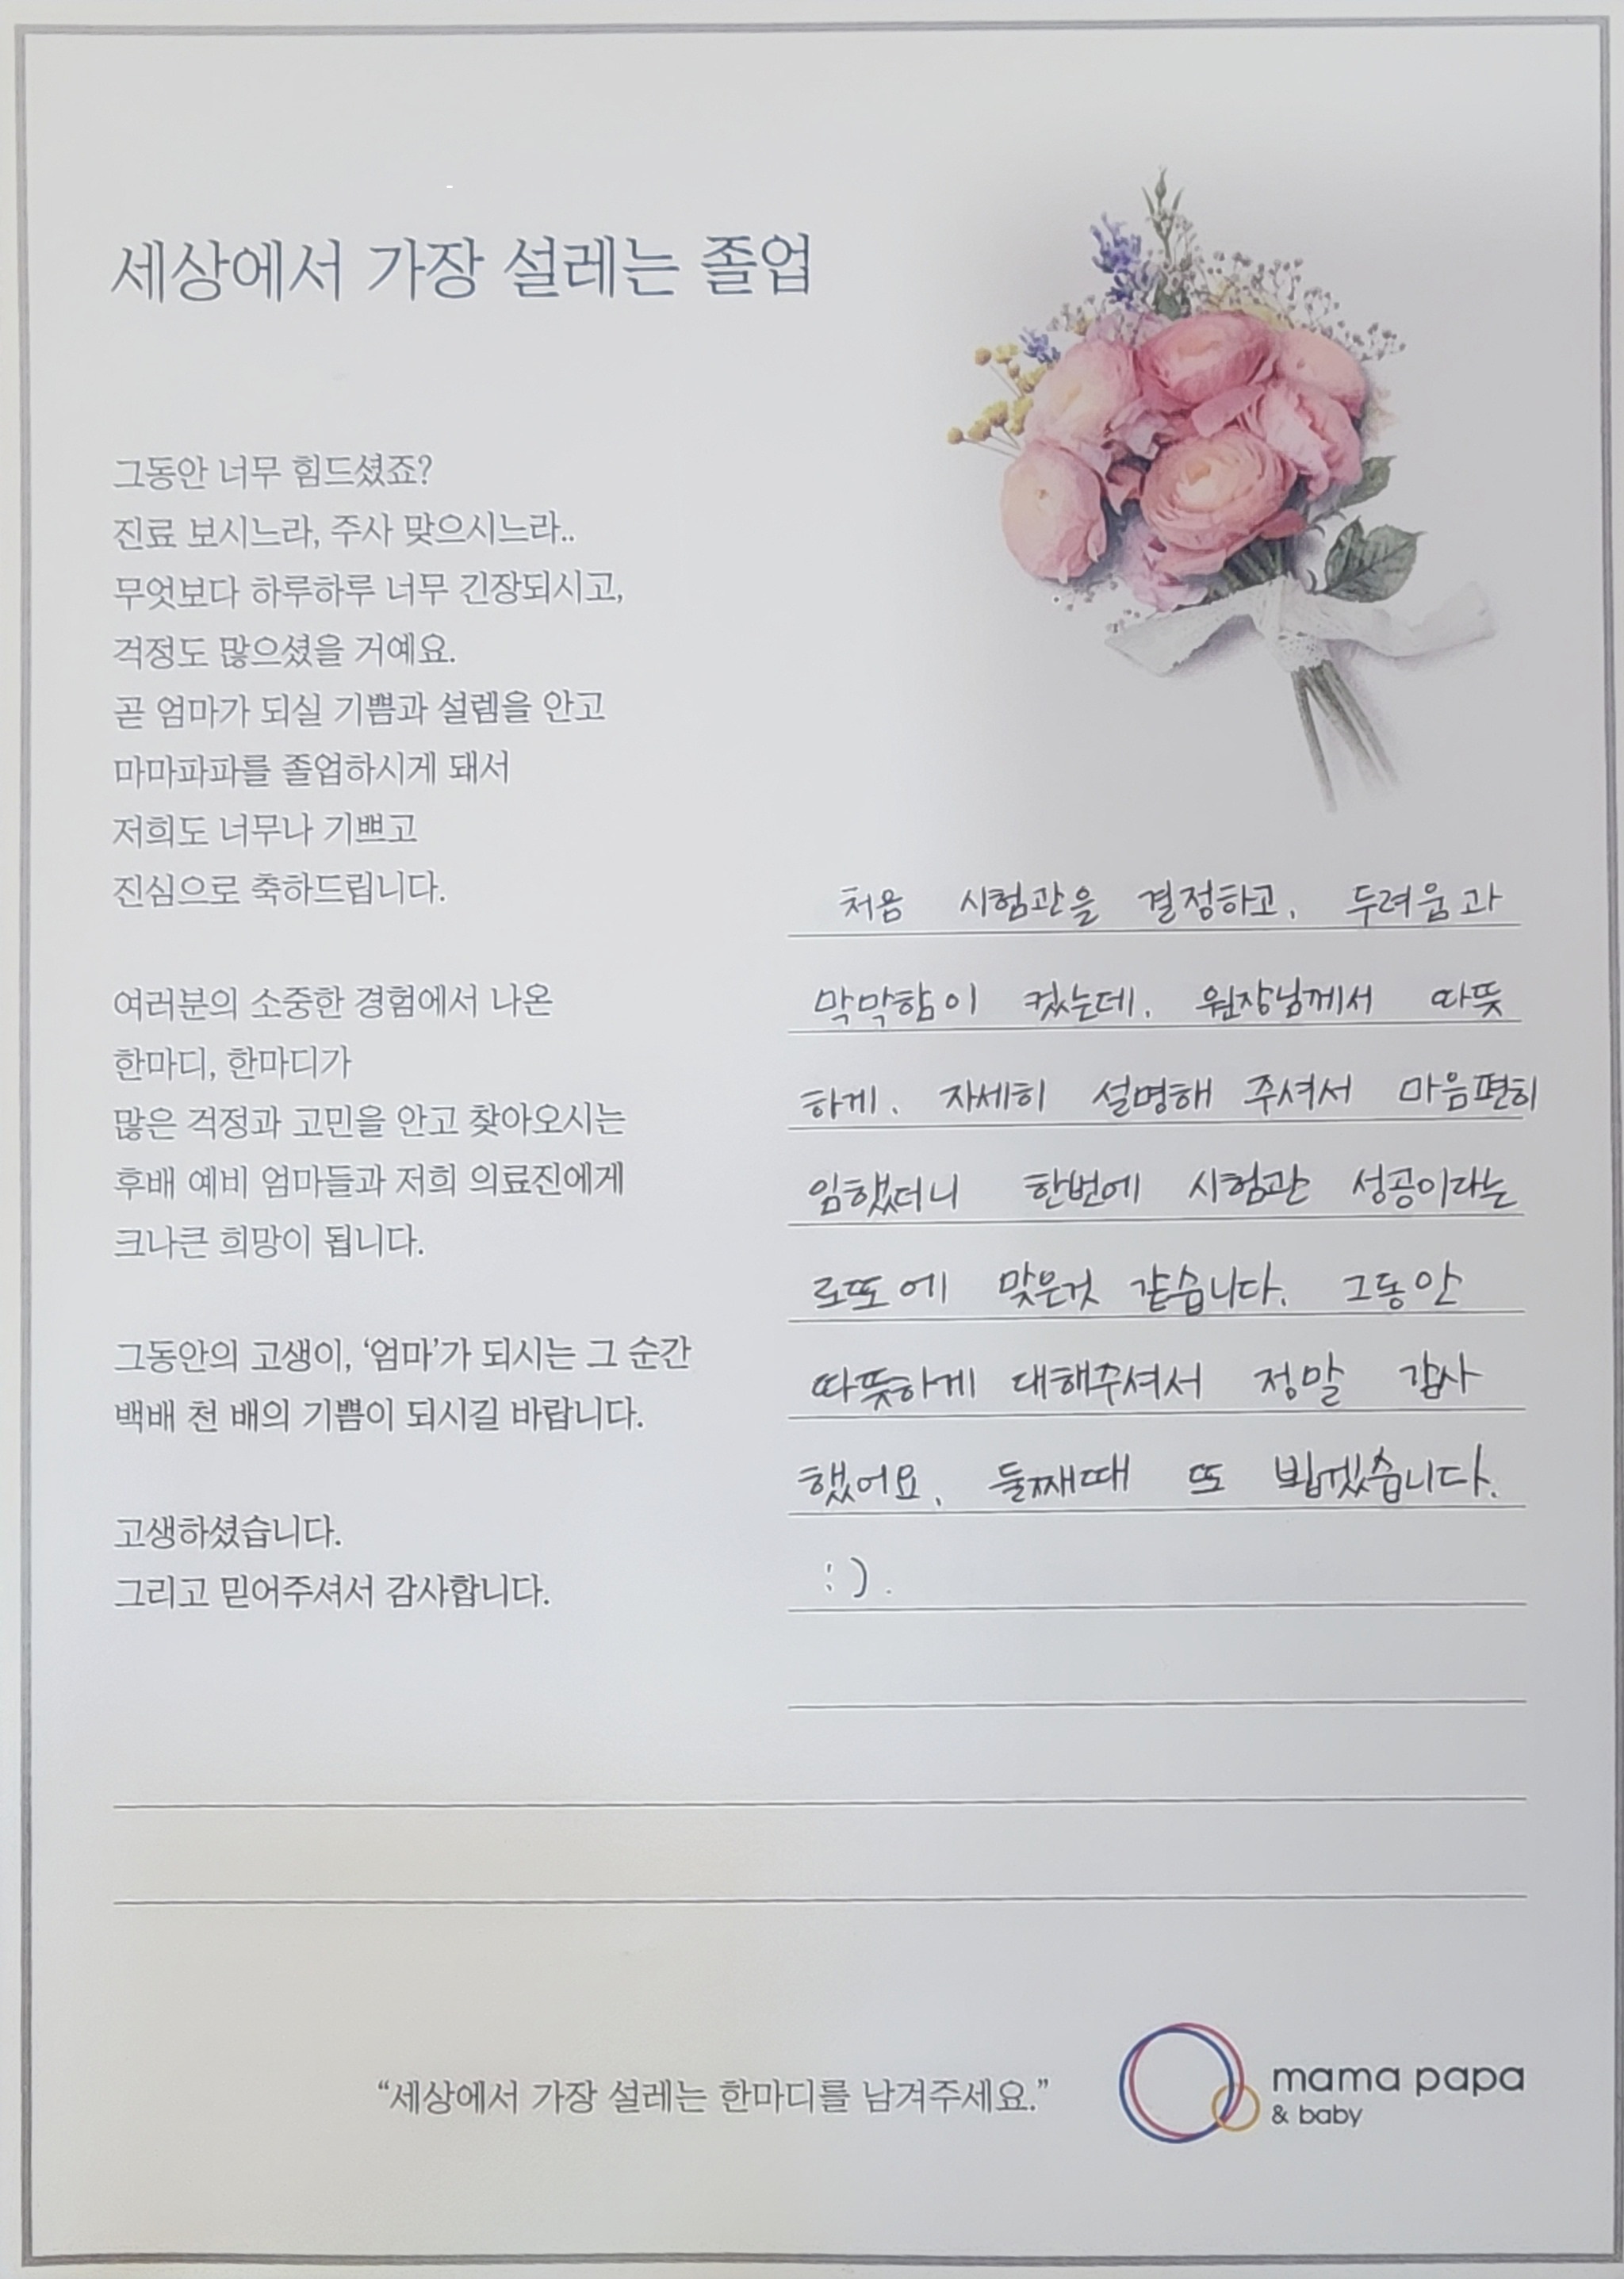 세상에서 가장 설레는 졸업
그동안 너무 힘드셨죠?
진료 보시느라, 주사 맞으시느라..
무엇보다 하루하루 너무 긴장되시고,
걱정도 많으셨을 거예요.
곧 엄마가 되실 기쁨과 설렘을 안고
마마파파를 졸업하시게 돼서
저희도 너무나 기쁘고
진심으로 축하드립니다.
여러분의 소중한 경험에서 나온
한마디, 한마디가
많은 걱정과 고민을 안고 찾아오시는
후배 예비 엄마들과 저희 의료진에게
크나큰 희망이 됩니다.
그동안의 고생이, ‘엄마’가 되시는 그 순간
백배 천 배의 기쁨이 되시길 바랍니다.
고생하셨습니다.
그리고 믿어주셔서 감사합니다.
처음 시험관을 결정하고, 두려움과
막막함이 컸는데, 원장님께서 따뜻
하게, 자세히 설명해 주셔서 마음편히
임했더니 한번에 시험관 성공이라는
로또에 맞은것 같습니다. 그동안
따뜻하게 대해주셔서 정말 감사
했어요, 둘째때 또 뵙겠습니다.
:).
“세상에서 가장 설레는 한마디를 남겨주세요.”
mama papa
& baby